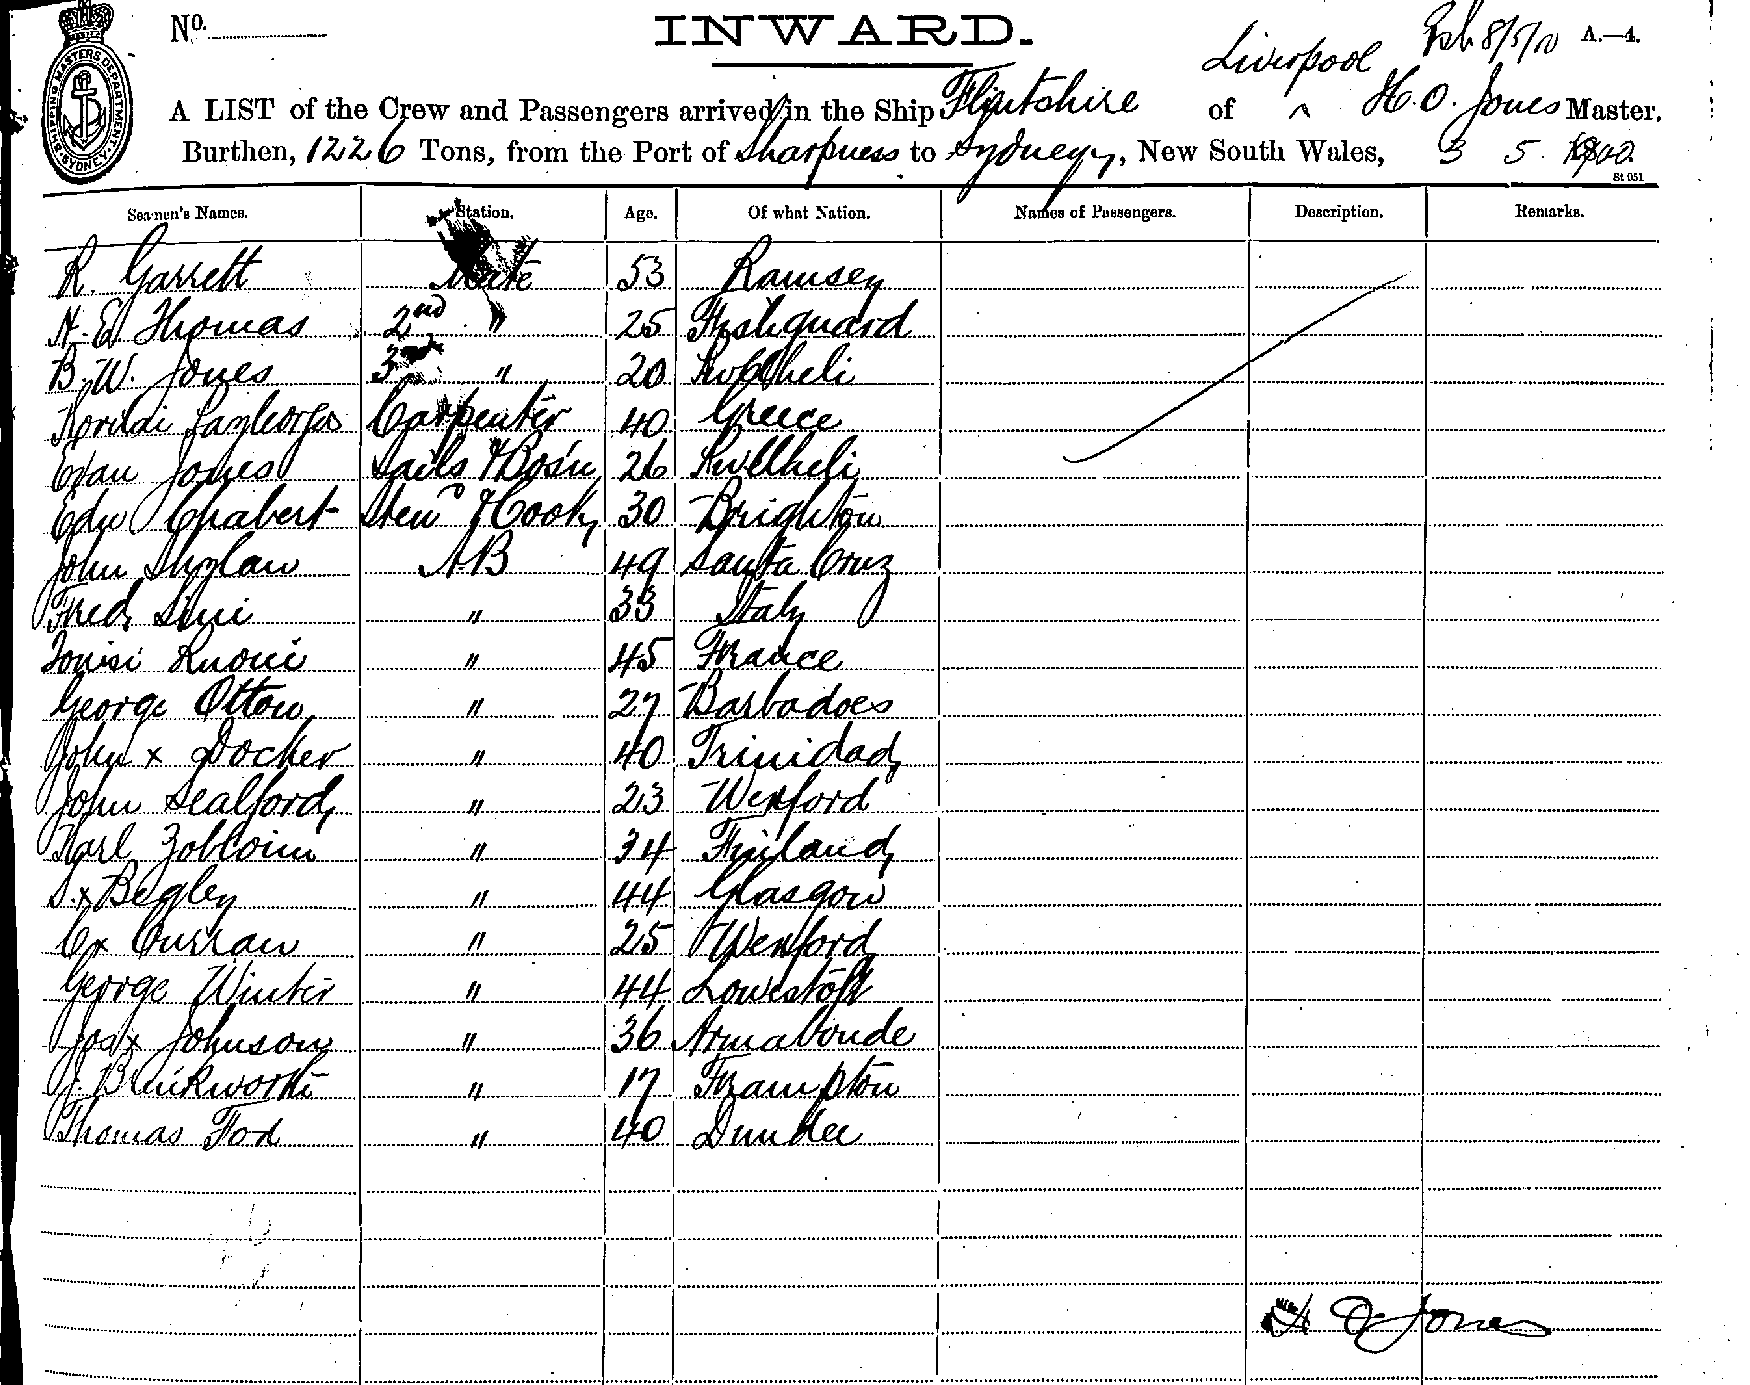 No.
INWARD.
A.—4.
Liverpool
SHIPPING MASTERS DEPARTMENT SYDNEY
A LIST of the Crew and Passengers arrived in the Ship Flintshire of ^ H. O. Jones Master,
Burthen, 1226 Tons, from the Port of Sharpness to Sydney, New South Wales, 3 5 1900.
St 051
Seamen's Names. Station. Age. Of what Nation. Names of Passengers. Description. Remarks.
R. Garrett Mate 53 Ramsey
H. E. Thomas 2nd " 25 Fishguard
B. W. Jones 3rd " 20 Pwllheli
Carpenter 40 Greece
Evan Jones Sails & Bos'n 26 Pwllheli
Edw Chabert Stewd & Cook 30 Brighton
John AB 49 Santa Cruz
Fred Sini " 33 Italy
" 45 France
George Otton " 27 Barbadoes
John x Docker " 40 Trinidad
John Sealford " 23 Wexford
Karl " 34 Finland
x Begley " 44 Glasgow
C x Curran " 25 Wexford
George Winter " 44 Lowestoft
Jos x Johnson " 36
J. Brinkworth " 17 Frampton
Thomas Tod " 40 Dundee
H O Jones